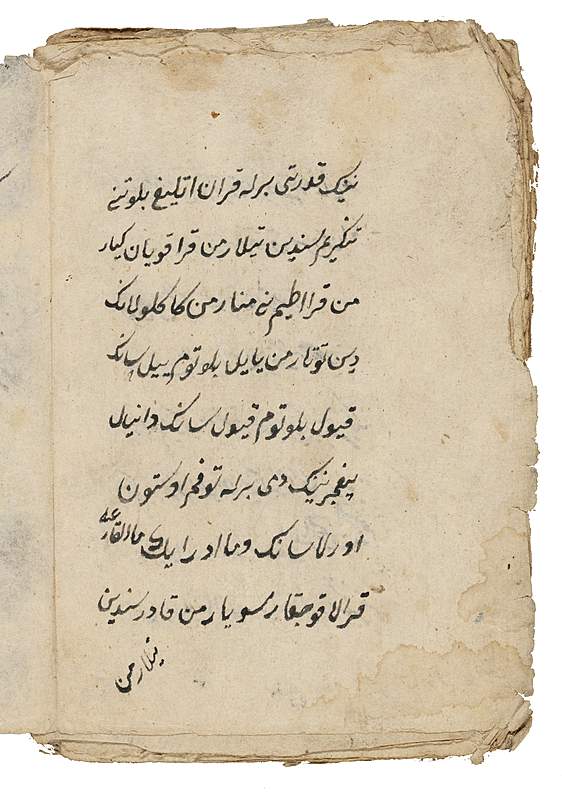 نینک قدرتی برله قران اتلیغ بلوتنے
تنکیریم سندین تیلارمن قرا قویان کیار
من قرا اطیم نے منارمن کاکلولانک
دین توتارمن یایل بلوتوم ییل سانک
قبول بلوتوم قبول سانک دانیال
پیغمبرنینک دمی برله توفم اوستون
اورلاسانک وما ادرایک ماالقارعه
قرالا قوچقار سویارمن قادر سندین
تیلارمن